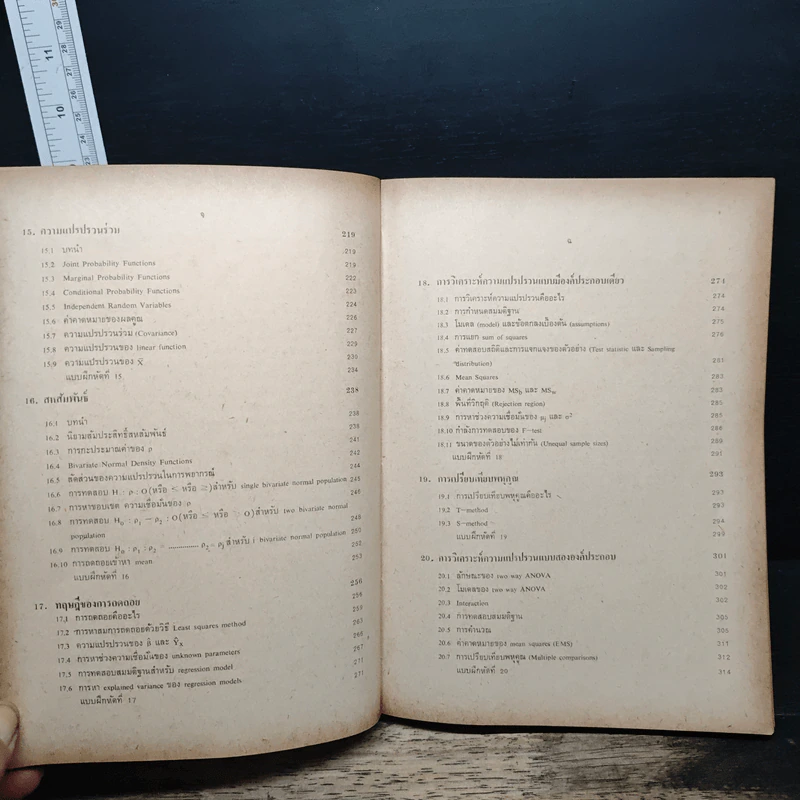 จ
15. ความแปรปรวนร่วม 219
15.1 บทนำ 219
15.2 Joint Probability Functions 219
15.3 Marginal Probability Functions 222
15.4 Conditional Probability Functions 223
15.5 Independent Random Variables 224
15.6 ค่าคาดหมายของผลคูณ 226
15.7 ความแปรปรวนร่วม (Covariance) 227
15.8 ความแปรปรวนของ linear function 229
15.9 ความแปรปรวนของ X̄ 230
แบบฝึกหัดที่ 15 234
16. สหสัมพันธ์ 238
16.1 บทนำ 238
16.2 นิยามสัมประสิทธิ์สหสัมพันธ์ 238
16.3 การกะประมาณค่าของ ρ 241
16.4 Bivariate Normal Density Functions 242
16.5 สัดส่วนของความแปรปรวนในการพยากรณ์ 244
16.6 การทดสอบ H : ρ : O (หรือ ≤ หรือ ≥) สำหรับ single bivariate normal population 245
16.7 การหาขอบเขต ความเชื่อมั่นของ ρ 246
16.8 การทดสอบ H₀ : ρ₁ − ρ₂ : O (หรือ ≤ หรือ O) สำหรับ two bivariate normal
population 248
16.9 การทดสอบ H₀ : ρ₁ : ρ₂ = ............... สำหรับ i bivariate normal population 250
16.10 การถดถอยเข้าหา mean 252
แบบฝึกหัดที่ 16 253
17. ทฤษฎีของการถดถอย 256
17.1 การถดถอยคืออะไร 256
17.2 การหาสมการถดถอยด้วยวิธี Least squares method
17.3 ความแปรปรวนของ β̂ และ Ŷₓ
17.4 การหาช่วงความเชื่อมั่นของ unknown parameters
17.5 การทดสอบสมมติฐานสำหรับ regression model
17.6 การหา explained variance ของ regression models 271
แบบฝึกหัดที่ 17 271
ฉ
18. การวิเคราะห์ความแปรปรวนแบบมีองค์ประกอบเดียว 274
18.1 การวิเคราะห์ความแปรปรวนคืออะไร 274
18.2 การกำหนดสมมติฐาน 274
18.3 โมเดล (model) และข้อตกลงเบื้องต้น (assumptions) 275
18.4 การแยก sum of squares 276
18.5 ค่าทดสอบสถิติและการแจกแจงของตัวอย่าง (Test statistic และ Sampling
distribution) 281
18.6 Mean Squares 283
18.7 ค่าคาดหมายของ MS_b และ MS_w 283
18.8 พื้นที่วิกฤติ (Rejection region) 285
18.9 การหาช่วงความเชื่อมั่นของ μⱼ และ σ² 285
18.10 กำลังการทดสอบของ F-test 286
18.11 ขนาดของตัวอย่างไม่เท่ากัน (Unequal sample sizes) 291
แบบฝึกหัดที่ 18 288
19. การเปรียบเทียบพหุคูณ 293
19.1 การเปรียบเทียบพหุคูณคืออะไร 293
19.2 T-method 293
19.3 S-method 294
แบบฝึกหัดที่ 19 299
20. การวิเคราะห์ความแปรปรวนแบบสององค์ประกอบ 301
20.1 ลักษณะของ two way ANOVA 301
20.2 โมเดลของ two way ANOVA 302
20.3 Interaction 302
20.4 การทดสอบสมมติฐาน 305
20.5 การคำนวณ 305
20.6 ค่าคาดหมายของ mean squares (EMS)
20.7 การเปรียบเทียบพหุคูณ (Multiple comparisons) 312
แบบฝึกหัดที่ 20 314